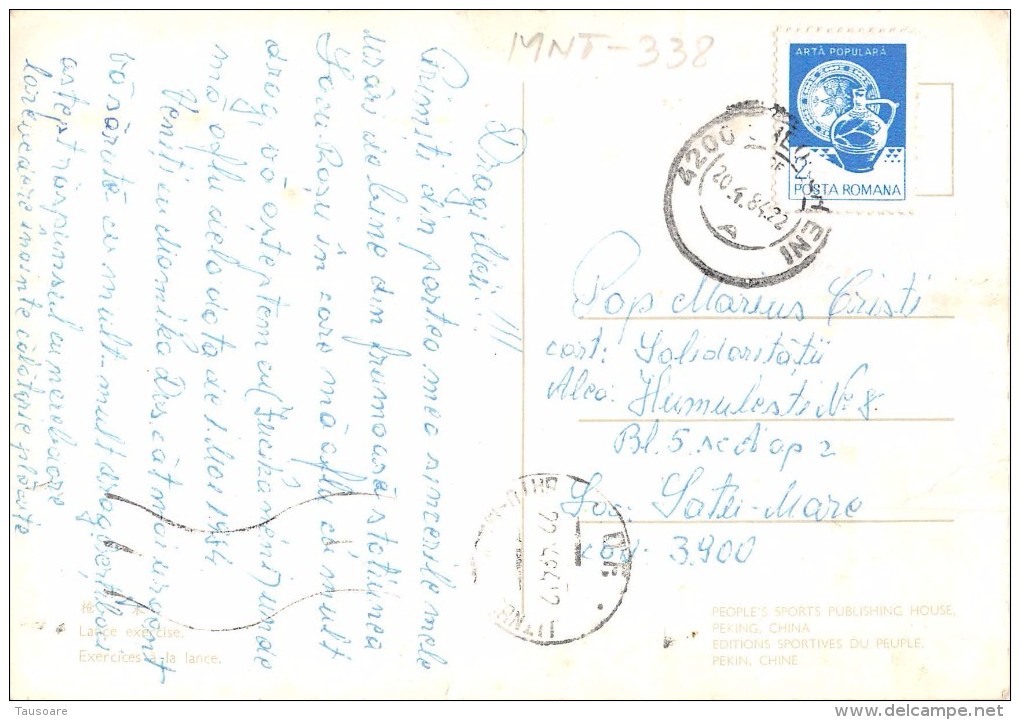 MNT-338
ARTĂ POPULARĂ
POSTA ROMANA
4200
20.4.84.22
A
Dragii Mei!!!
Primiti din partea mea sincerile mele
urări de bine din frumoasă statiunea
Lacu-Rosu in care mă aflu cu mult
drag vă astept
mă aflu dela data de 1. Mai 1984
Veniti cu
vă sărută cu mult-mult drag
astept răspunsul cu nerabdare
la revedere inainte călătorie plăcută
Pop Marius Cristi
cart: Solidarității
Alea: Humulesti Nr 8
Bl. 5. sc A ap 2
Loc. Satu-Mare
COD: 3.900
22.4.84.12
Lance exercise.
Exercices à la lance.
PEOPLE'S SPORTS PUBLISHING HOUSE,
PEKING, CHINA
EDITIONS SPORTIVES DU PEUPLE,
PEKIN, CHINE
Tausoare
delcampe.net